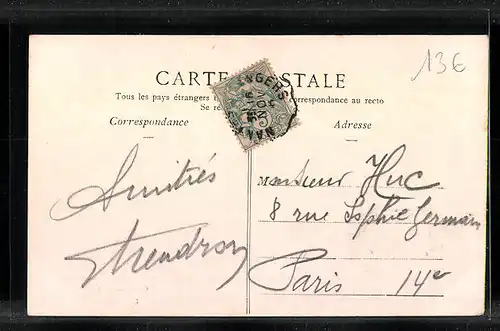 13€
CARTE POSTALE
Tous les pays étrangers correspondance au recto
Se re
Correspondance
Adresse
ANGERS
NOV
Amitiés
Monsieur Huc
8 rue Sophie Germain
Paris 14e